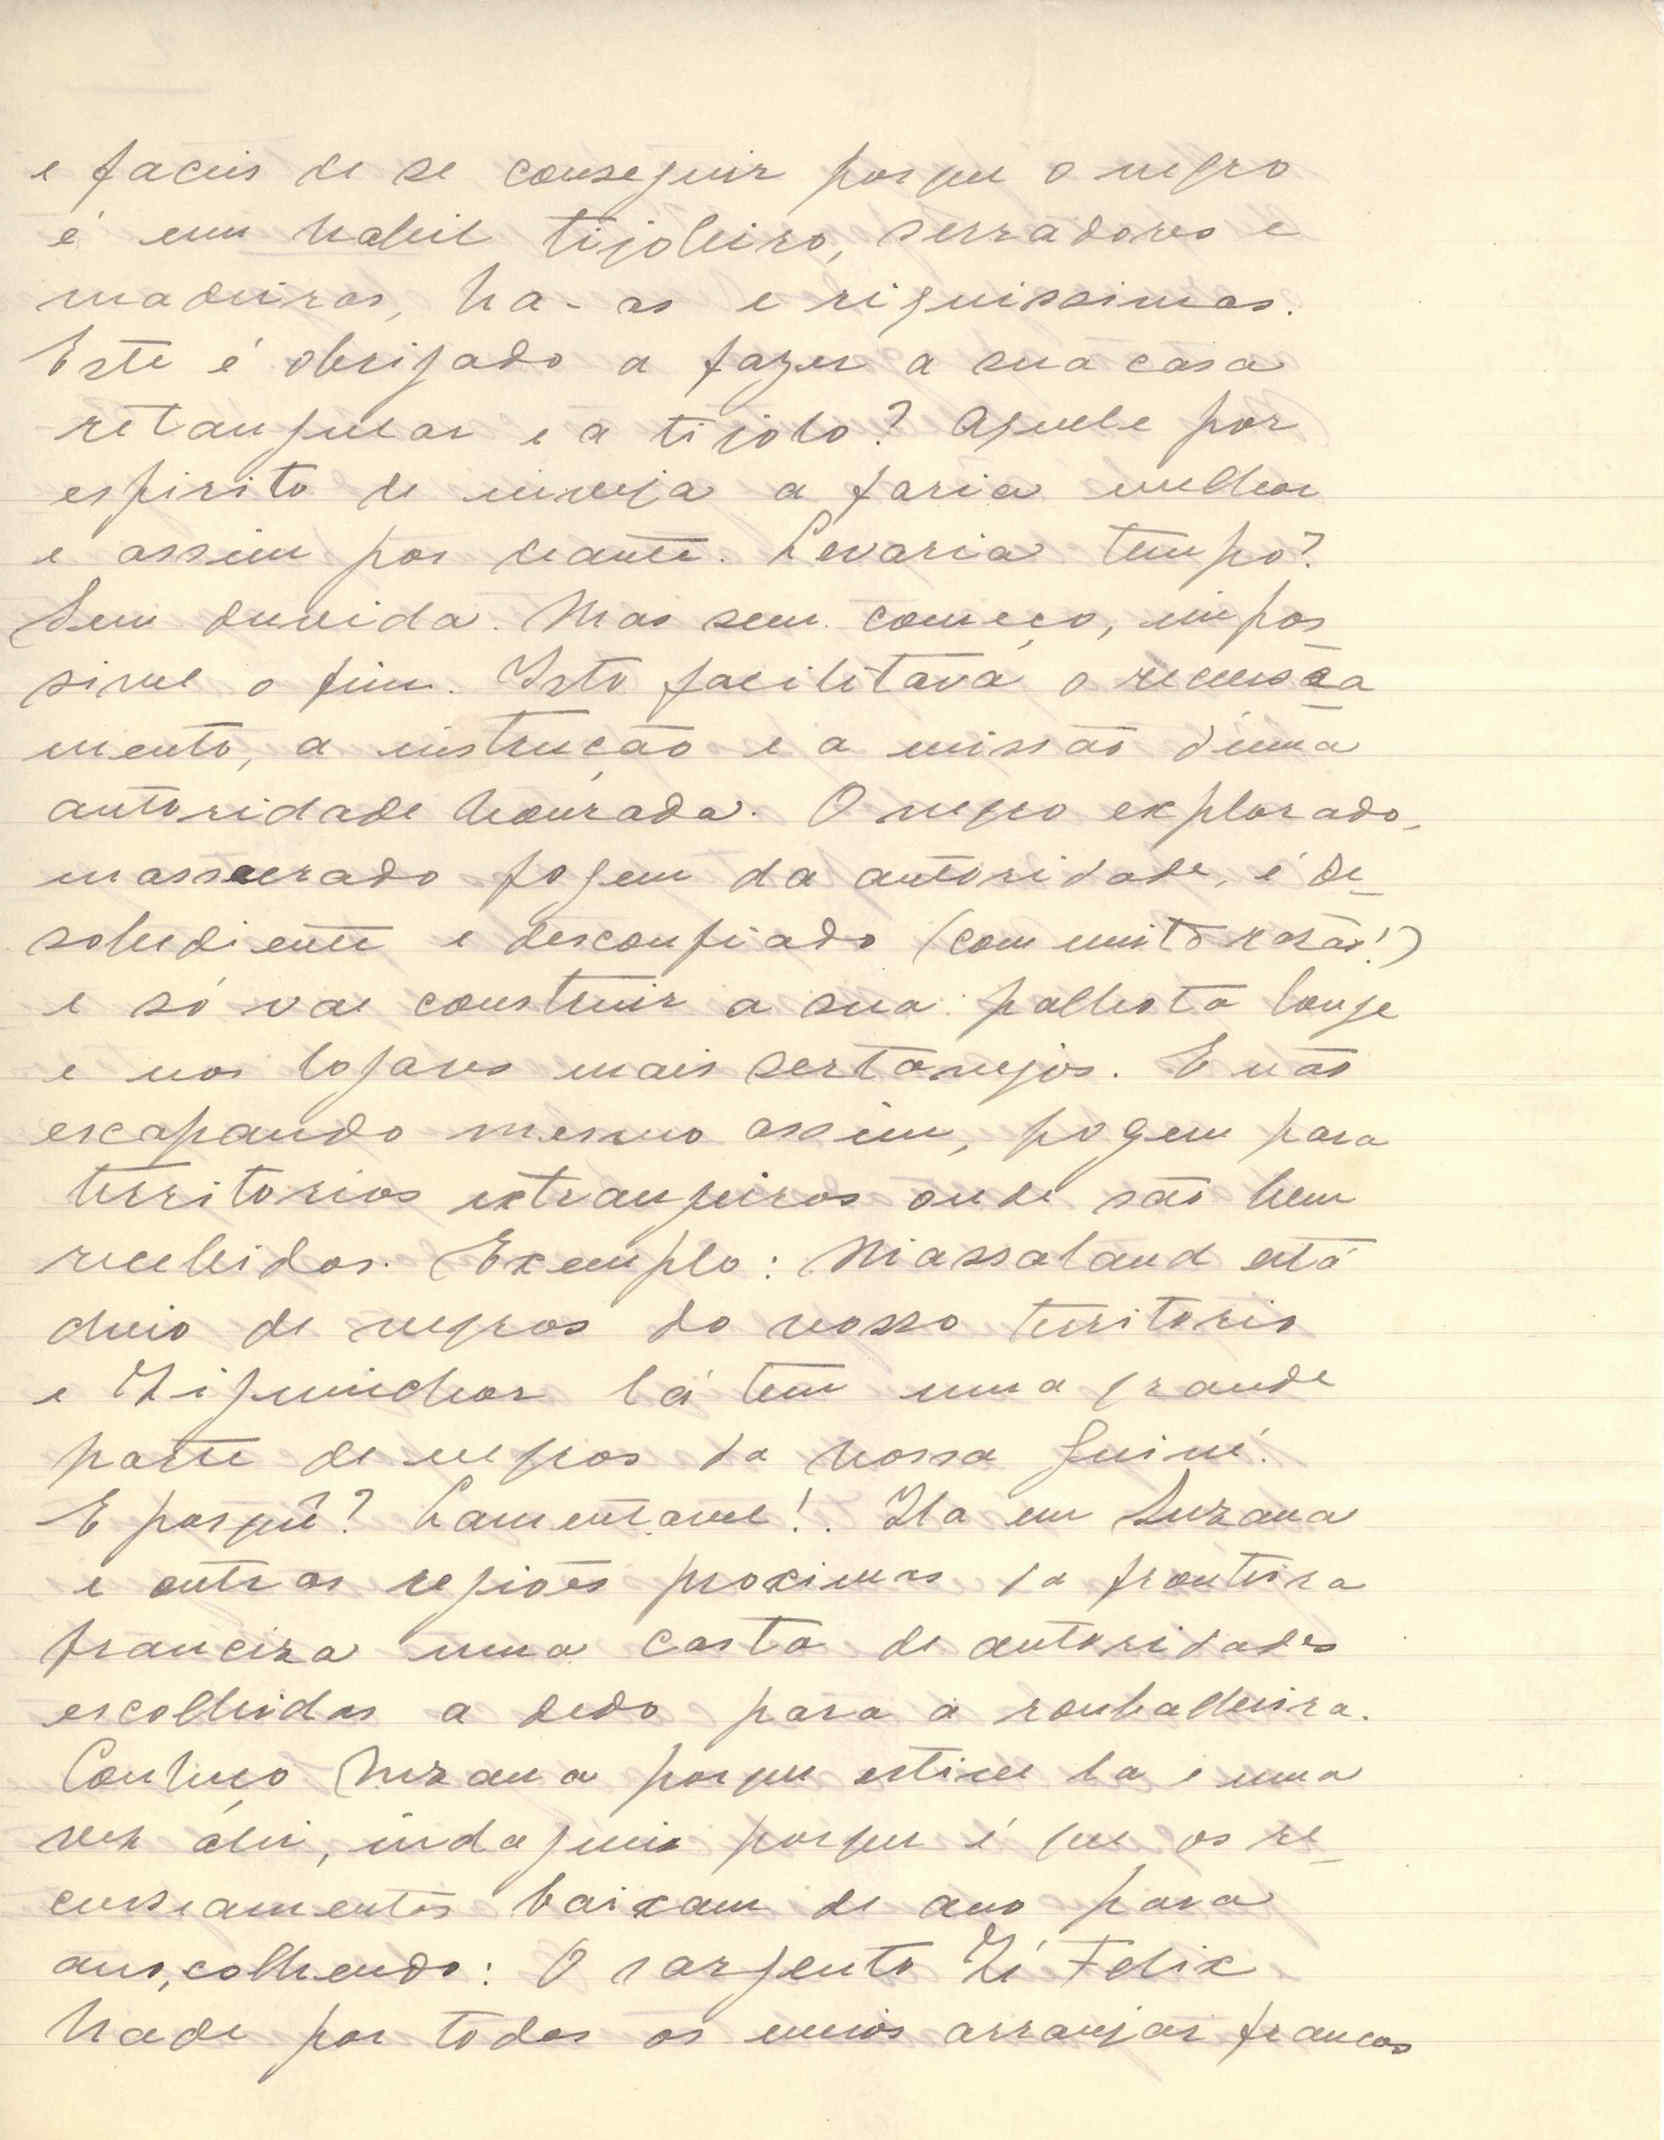 e faceis de se conseguir porque o negro
é um habil tijoleiro, serradores e
madeiras, ha-as e riquissimas.
Este é obrigado a fazer a sua casa
retangular e a tijolo? Aquele por
espirito de inveja a faria melhor
e assim por deante. Levaria tempo?
Sem duvida. Mas sem começo, impos
sivel o fim. Isto facilitava o recensea
mento, a instrução e a missão d'uma
autoridade honrada. O negro explorado,
massacrado fogem da autoridade, é de-
sobediente e desconfiado (com muito razão!)
e só vae construir a sua palhota longe
e nos logares mais sertanejos. E não
escapando mesmo assim, fogem para
territorios extrangeiros onde são bem
recebidos. Exemplo: Niassaland está
cheio de negros do nosso territorio
e Ziguinchor lá tem uma grande
parte de negros da nossa Guiné.
E porquê? Lamentavel!. Ha em Suzana
e outras regiões proximas da fronteira
franceza uma casta de autoridades
escolhidas a dedo para a roubalheira.
Conheço Suzana porque estive la e uma
vez alli, indaguei porque é que os re-
censeamentos baixam de ano para
ano, colhendo: O sargento Zé Felix
hade por todos os meios arranjar francos